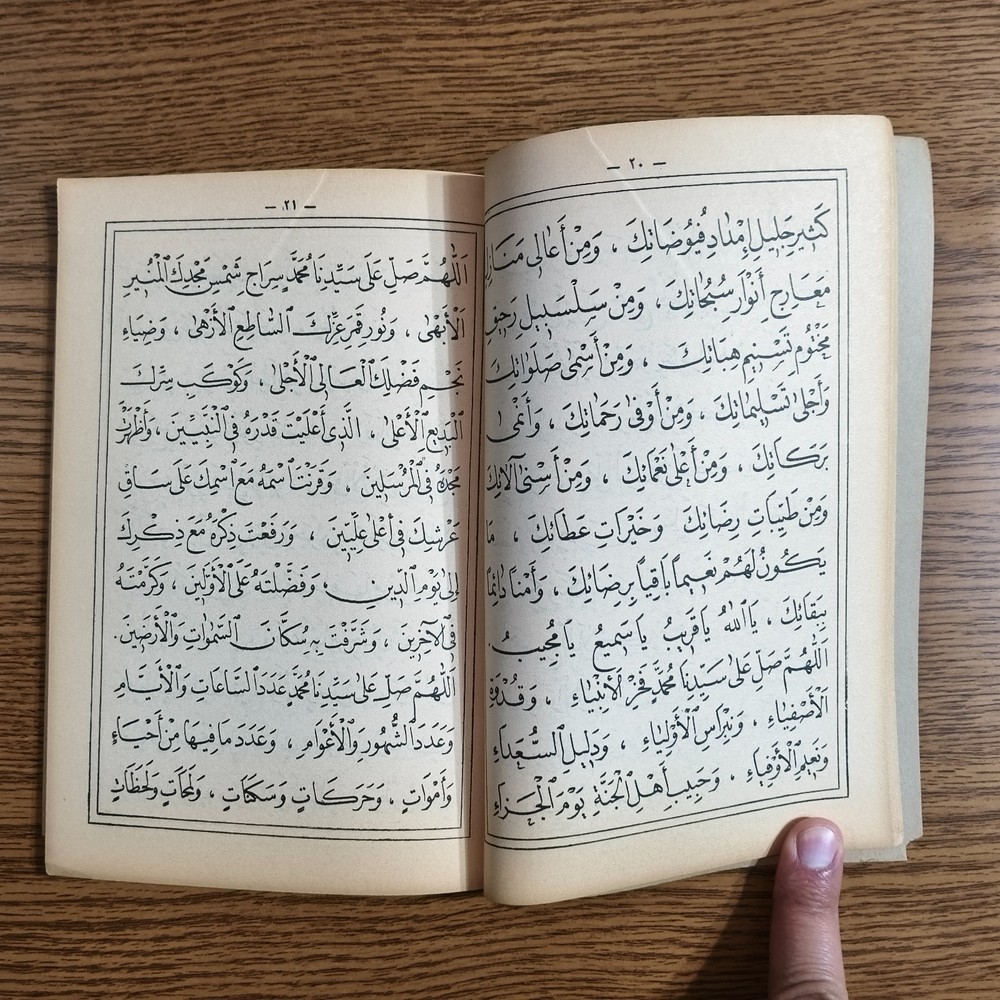 — ٢٠ —
كَثِيرِ جَلِيلِ إِمْدَادِ فُيُوضَاتِكَ ، وَمِنْ أَعَالِى
مَعَارِجِ أَنْوَارِ سُبُحَاتِكَ ، وَمِنْ سَلْسَبِيلِ
مَخْتُومِ تَسْنِيمِ هِبَاتِكَ ، وَمِنْ أَسْمٰى صَلَوَاتِكَ
وَأَجْلٰى تَسْلِيمَاتِكَ ، وَمِنْ أَوْفٰى رَحَمَاتِكَ ، وَأَنْمٰى
بَرَكَاتِكَ ، وَمِنْ أَعْلٰى نَعْمَاتِكَ ، وَمِنْ أَسْنٰى آلَائِكَ
وَمِنْ طَيِّبَاتِ رِضَائِكَ وَخَيْرَاتِ عَطَائِكَ ، مَا
يَكُونُ لَهُمْ نَعِيماً بَاقِياً بِرِضَائِكَ ، وَأَمْناً دَائِماً
بِبَقَائِكَ ، يَا اَللهُ يَا قَرِيبُ يَا سَمِيعُ يَا مُجِيبُ .
اَللّٰهُمَّ صَلِّ عَلٰى سَيِّدِنَا مُحَمَّدٍ فَخْرِ الْأَنْبِيَاءِ ، وَقُدْوَةِ
الْأَصْفِيَاءِ ، وَنِبْرَاسِ الْأَوْلِيَاءِ ، وَدَلِيلِ السُّعَدَاءِ
وَنَعِيمِ الْأَوْفِيَاءِ ، وَحَبِيبِ أَهْلِ الْجَنَّةِ يَوْمَ الْجَزَاءِ
— ٢١ —
اَللّٰهُمَّ صَلِّ عَلٰى سَيِّدِنَا مُحَمَّدٍ سِرَاجِ شَمْسِ مَجْدِكَ الْمُنِيرِ
الْأَبْهٰى ، وَنُورِ قَمَرِ عِزِّكَ السَّاطِعِ الْأَزْهٰى ، وَضِيَاءِ
نَجْمِ فَضْلِكَ الْعَالِى الْأَجْلٰى ، وَكَوْكَبِ سِرِّكَ
الْبَدِيعِ الْأَعْلٰى ، الَّذِى أَعْلَيْتَ قَدْرَهُ فِى النَّبِيِّينَ ، وَأَظْهَرْتَ
مَجْدَهُ فِى الْمُرْسَلِينَ ، وَقَرَنْتَ اسْمَهُ مَعَ اسْمِكَ عَلٰى سَاقِ
عَرْشِكَ فِى أَعْلٰى عِلِّيِّينَ ، وَرَفَعْتَ ذِكْرَهُ مَعَ ذِكْرِكَ
إِلٰى يَوْمِ الدِّينِ ، وَفَضَّلْتَهُ عَلَى الْأَوَّلِينَ ، وَكَرَّمْتَهُ
فِى الْآخِرِينَ ، وَشَرَّفْتَ بِهِ سُكَّانَ السَّمٰوَاتِ وَالْأَرَضِينَ .
اَللّٰهُمَّ صَلِّ عَلٰى سَيِّدِنَا مُحَمَّدٍ عَدَدَ السَّاعَاتِ وَالْأَيَّامِ
وَعَدَدَ الشُّهُورِ وَالْأَعْوَامِ ، وَعَدَدَ مَا فِيهَا مِنْ أَحْيَاءٍ
وَأَمْوَاتٍ ، وَحَرَكَاتٍ وَسَكَنَاتٍ ، وَلَمَحَاتٍ وَلَحَظَاتٍ